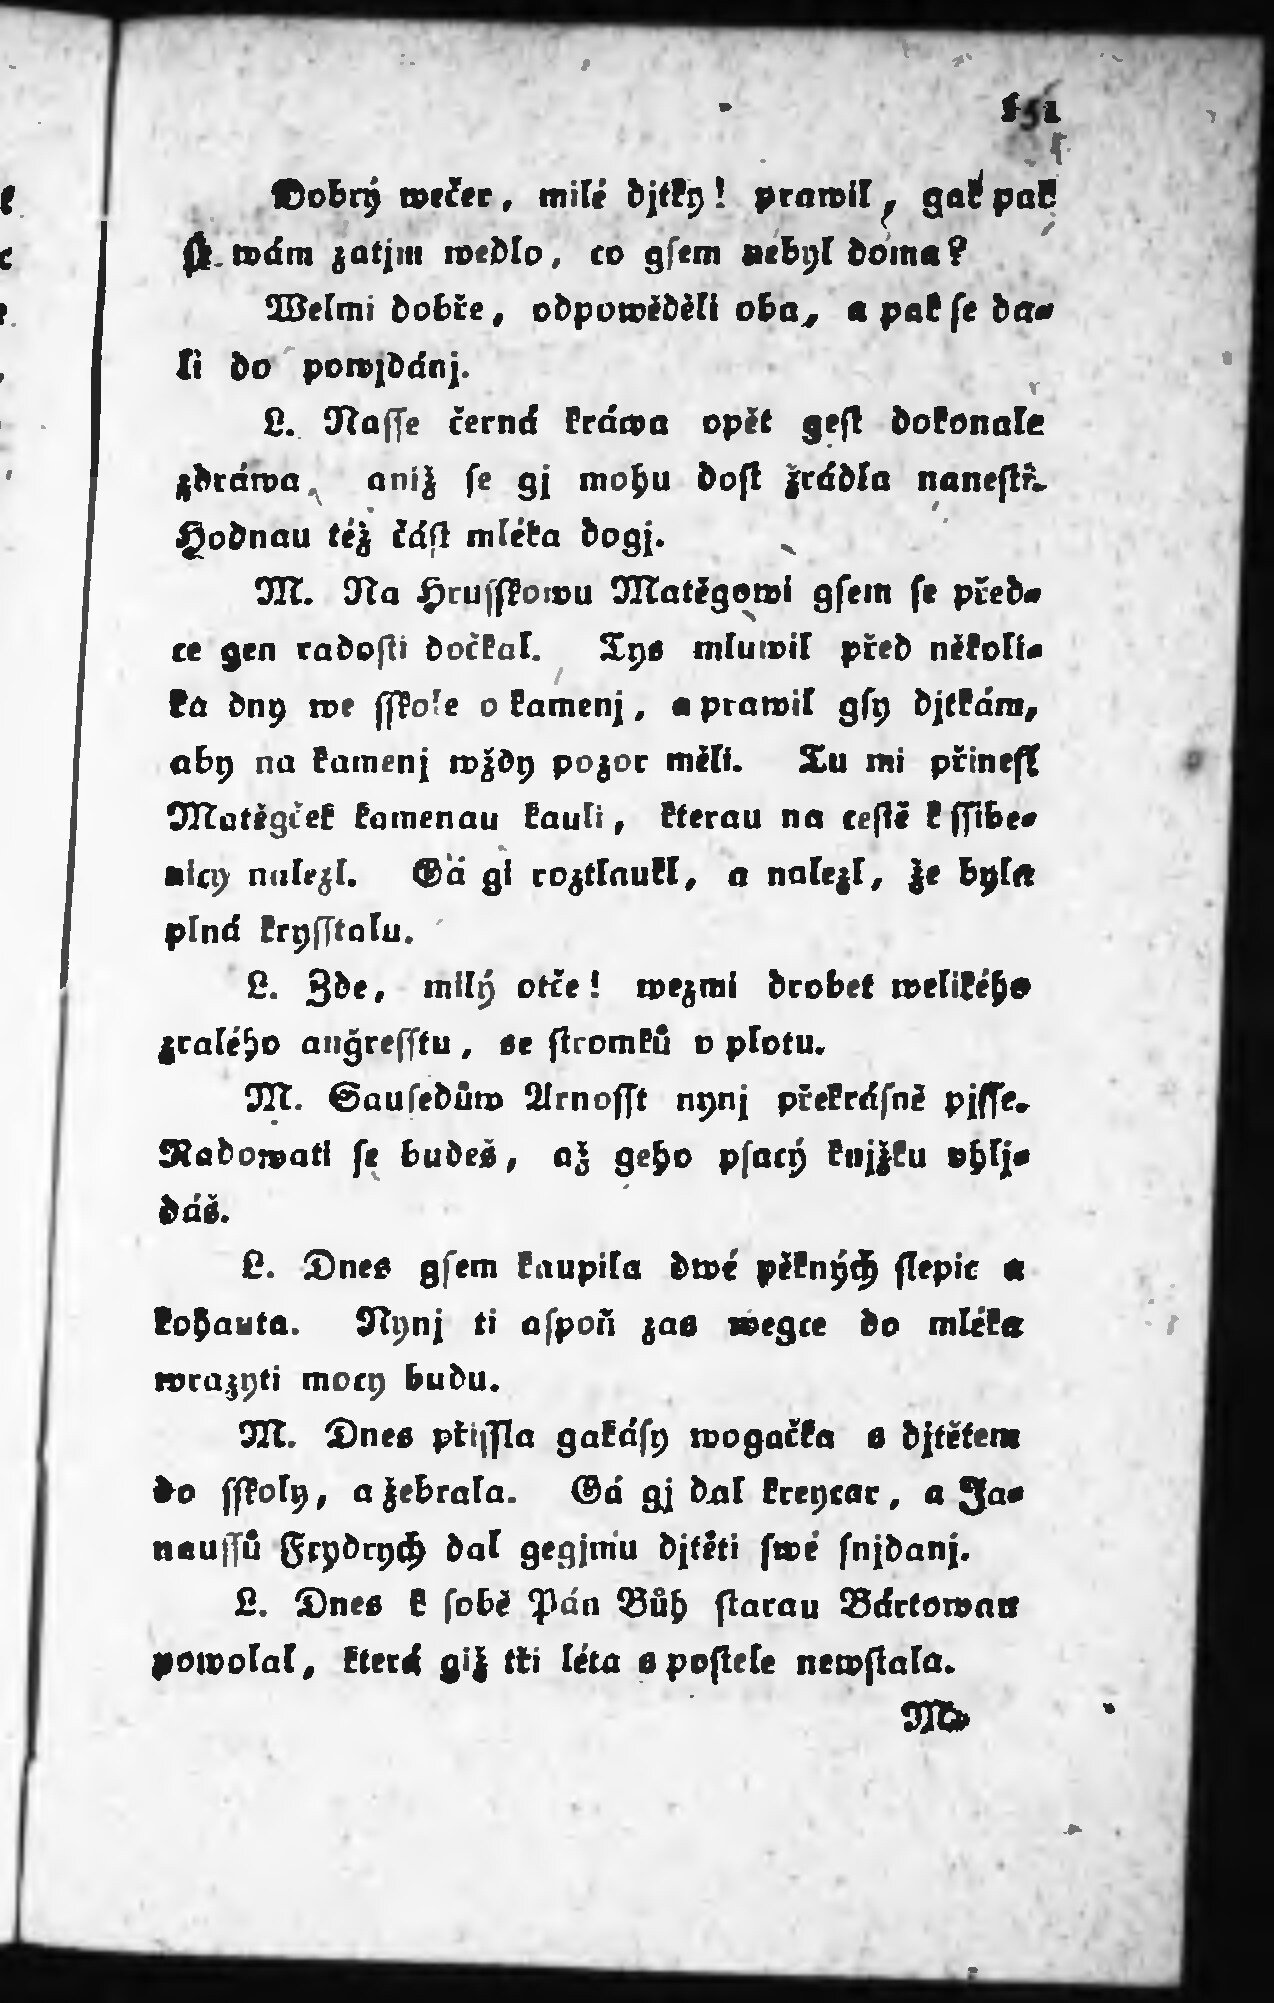 151
Dobrý wečer, milé djtky! prawil, gak pak
ſe wám zatjm wedlo, co gſem nebyl doma?
Welmi dobře, odpowěděli oba, a pak ſe da-
li do powjdánj.
L. Naſſe černá kráwa opět geſt dokonale
zdráwa, aniž ſe gj mohu doſt žrádla naneſtř.
Hodnau též čáſt mléka dogj.
M. Na Hruſſkowu Matěgowi gſem ſe před-
ce gen radoſti dočkal. Tys mluwil před několi-
ka dny we ſſkole o kamenj, a prawil gſy djtkám,
aby na kamenj wždy pozor měli. Tu mi přineſl
Matěgček kamenau kauli, kterau na ceſtě k ſſibe-
nicy nalezl. Gá gi roztlaukl, a nalezl, že byla
plná kryſſtalu.
L. Zde, milý otče! wezmi drobet welikého
zralého anǧreſſtu, se ſtromků v plotu.
M. Sauſedůw Arnoſſt nynj překráſně pjſſe.
Radowati ſe budeš, až geho pſacý knjžku vhlj-
dáš.
L. Dnes gſem kaupila dwé pěkných ſlepic a
kohauta. Nynj ti aſpoň zas wegce do mléka
wrazyti mocy budu.
M. Dnes přiſſla gakáſy wogačka s djtětem
do ſſkoly, a žebrala. Gá gj dal kreycar, a Ja-
nauſſů Frydrych dal gegjmu djtěti ſwé ſnjdanj.
L. Dnes k ſobě Pán Bůh ſtarau Bártowau
powolal, která giž tři léta s poſtele newſtala.